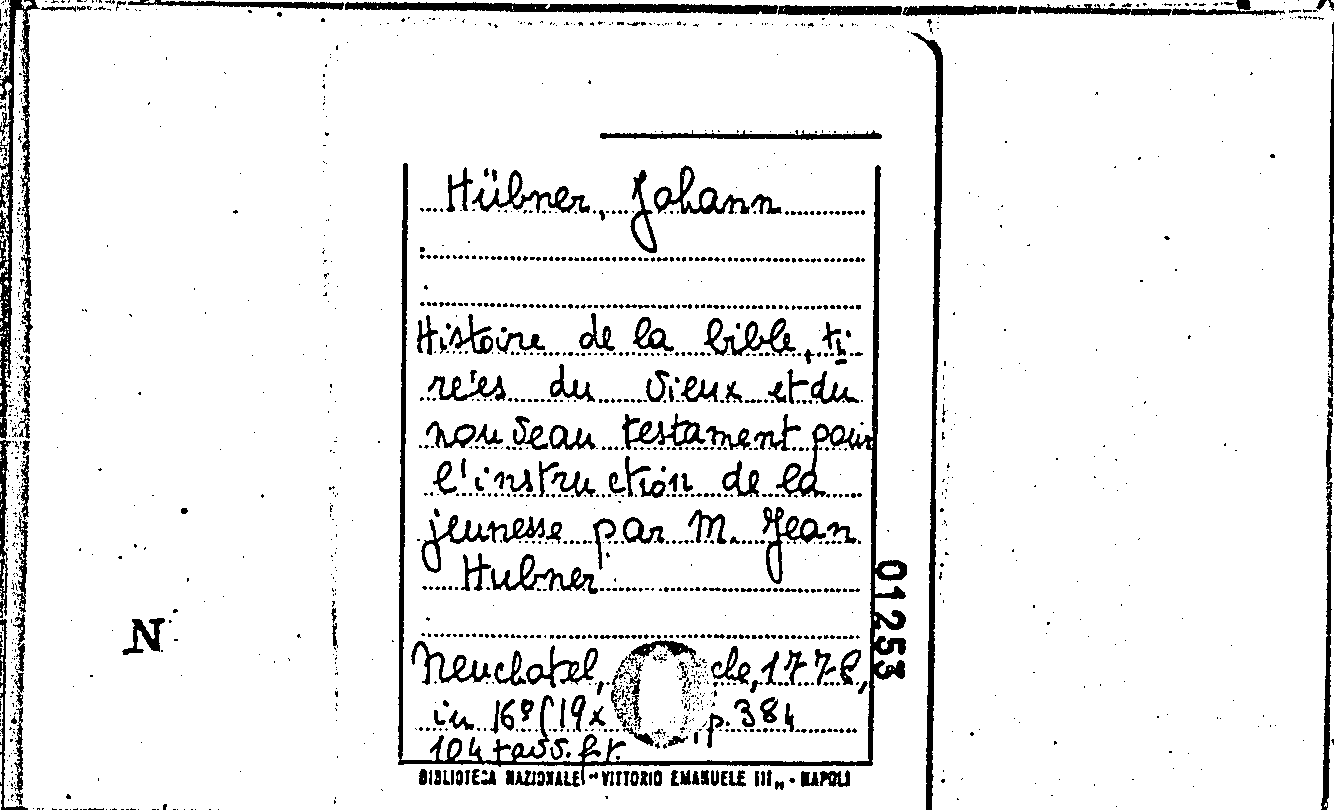 Hübner, Johann
Histoire de la bible, ti-
rées du vieux et du
nouveau testament pour
l'instruction de la
jeunesse par M. Jean
Hubner
Neuchatel, che, 1778,
in 16º (19x p. 384
104 tavv. f.t.
BIBLIOTECA NAZIONALE "VITTORIO EMANUELE III" - NAPOLI
01253
N